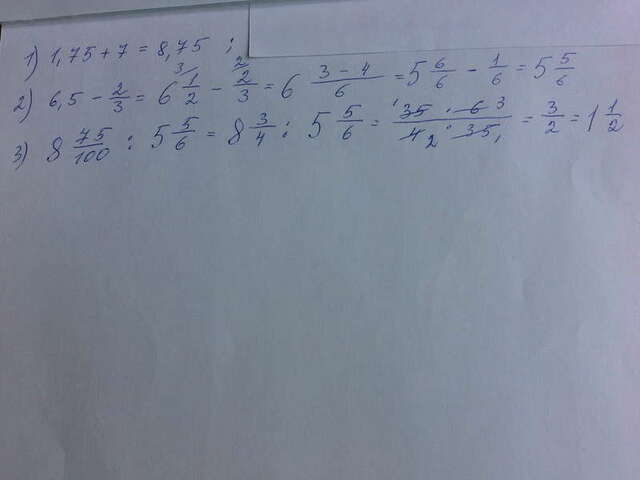 1) 1,75 + 7 = 8,75 ;
2) 6,5 - 2/3 = 6 1/2 3/ - 2/3 2/ = 6 (3 - 4)/6 = 5 6/6 - 1/6 = 5 5/6
3) 8 75/100 : 5 5/6 = 8 3/4 : 5 5/6 = (35 1 · 6 3)/(4 2 · 35 1) = 3/2 = 1 1/2